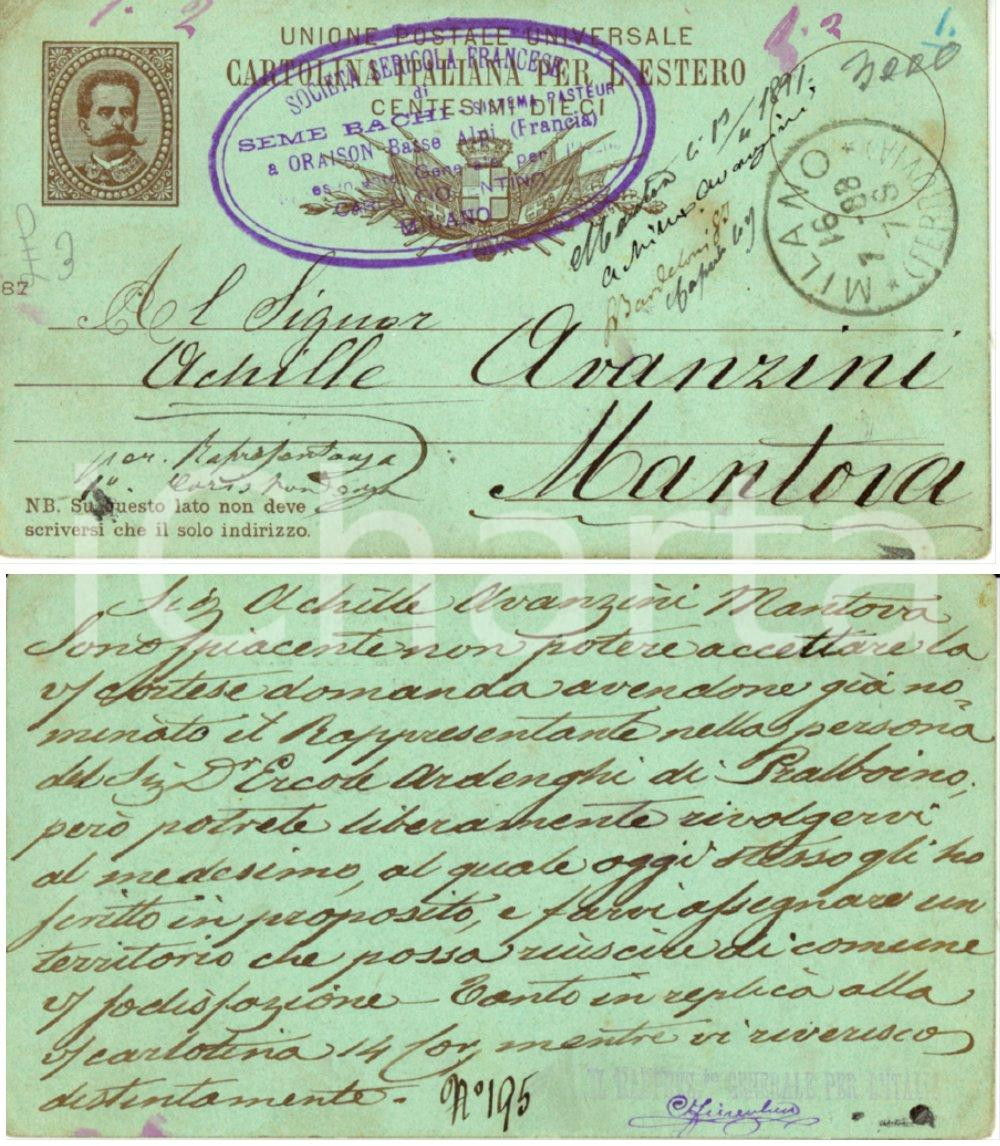 1. 2
5. 2
1.
3000
UNIONE POSTALE UNIVERSALE
CARTOLINA ITALIANA PER L'ESTERO
CENTESIMI DIECI
SOCIETÀ SERICOLA FRANCESE
di
SEME BACHI SISTEMA PASTEUR
a ORAISON Basse Alpi (Francia)
Generale per l'Italia
MILANO
1891
Achille Avanzini
MILANO
(FERROVIA)
16 91
87
Al Signor
Achille Avanzini
Mantova
per Rapresentanza
NB. Su questo lato non deve
scriversi che il solo indirizzo.
iCharta
Sig Achille Avanzini Mantova
Sono spiacente non potere accettare la
v/ cortese domanda avendone già no-
minato il Rappresentante nella persona
del Sig Dr Ercole Ardenghi di Pralboino,
però potrete liberamente rivolgervi
al medesimo, al quale oggi stesso gli ho
scritto in proposito, e farvi assegnare un
territorio che possa riuscire di comune
v/ sodisfazione - Tanto in replica alla
v/ cartolina 14 cor, mentre vi riverisco
distintamente.
No 195
GENERALE PER L'ITALIA